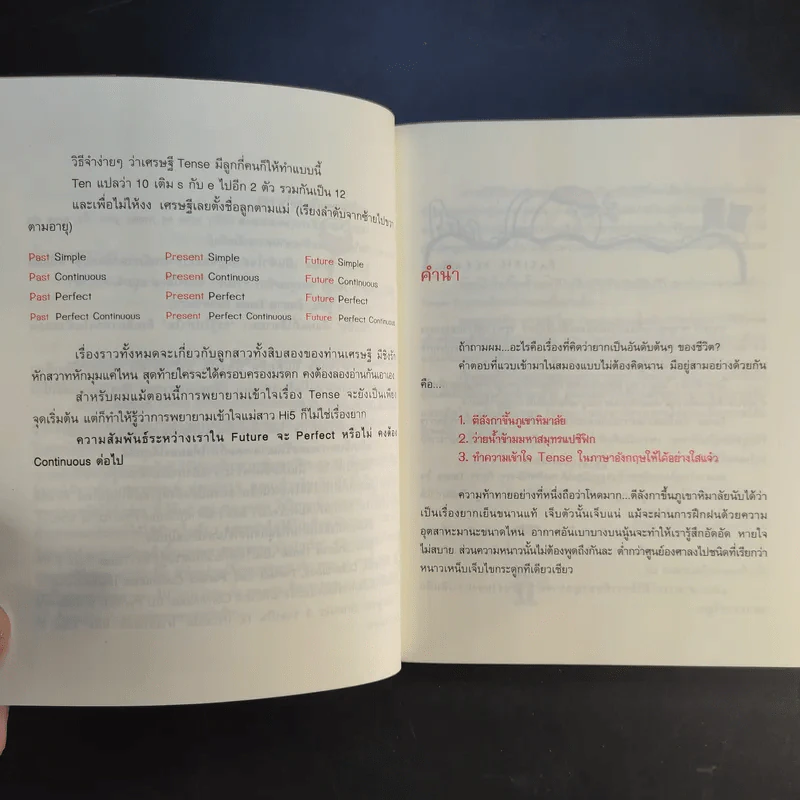 วิธีจำง่ายๆ ว่าเศรษฐี Tense มีลูกกี่คนก็ให้ทำแบบนี้
Ten แปลว่า 10 เติม s กับ e ไปอีก 2 ตัว รวมกันเป็น 12
และเพื่อไม่ให้งง เศรษฐีเลยตั้งชื่อลูกตามแม่ (เรียงลำดับจากซ้ายไปขวา
ตามอายุ)
Past Simple Present Simple Future Simple
Past Continuous Present Continuous Future Continuous
Past Perfect Present Perfect Future Perfect
Past Perfect Continuous Present Perfect Continuous Future Perfect Continuous
เรื่องราวทั้งหมดจะเกี่ยวกับลูกสาวทั้งสิบสองของท่านเศรษฐี มีชิงรัก
หักสวาทหักมุมแค่ไหน สุดท้ายใครจะได้ครอบครองมรดก คงต้องลองอ่านกันเอาเอง
สำหรับผมแม้ตอนนี้การพยายามเข้าใจเรื่อง Tense จะยังเป็นเพียง
จุดเริ่มต้น แต่ก็ทำให้รู้ว่าการพยายามเข้าใจแม่สาว Hi5 ก็ไม่ใช่เรื่องยาก
ความสัมพันธ์ระหว่างเราใน Future จะ Perfect หรือไม่ คงต้อง
Continuous ต่อไป
คำนำ
ถ้าถามผม...อะไรคือเรื่องที่คิดว่ายากเป็นอันดับต้นๆ ของชีวิต?
คำตอบที่แวบเข้ามาในสมองแบบไม่ต้องคิดนาน มีอยู่สามอย่างด้วยกัน
คือ...
1. ตีลังกาขึ้นภูเขาหิมาลัย
2. ว่ายน้ำข้ามมหาสมุทรแปซิฟิก
3. ทำความเข้าใจ Tense ในภาษาอังกฤษให้ได้อย่างใสแจ๋ว
ความท้าทายอย่างที่หนึ่งถือว่าโหดมาก...ตีลังกาขึ้นภูเขาหิมาลัยนับได้ว่า
เป็นเรื่องยากเย็นขนานแท้ เจ็บตัวนั้นเจ็บแน่ แม้จะผ่านการฝึกฝนด้วยความ
อุตสาหะมานะขนาดไหน อากาศอันเบาบางบนนู้นจะทำให้เรารู้สึกอัดอัด หายใจ
ไม่สบาย ส่วนความหนาวนั้นไม่ต้องพูดถึงกันละ ต่ำกว่าศูนย์องศาลงไปชนิดที่เรียกว่า
หนาวเหน็บเจ็บไขกระดูกทีเดียวเชียว